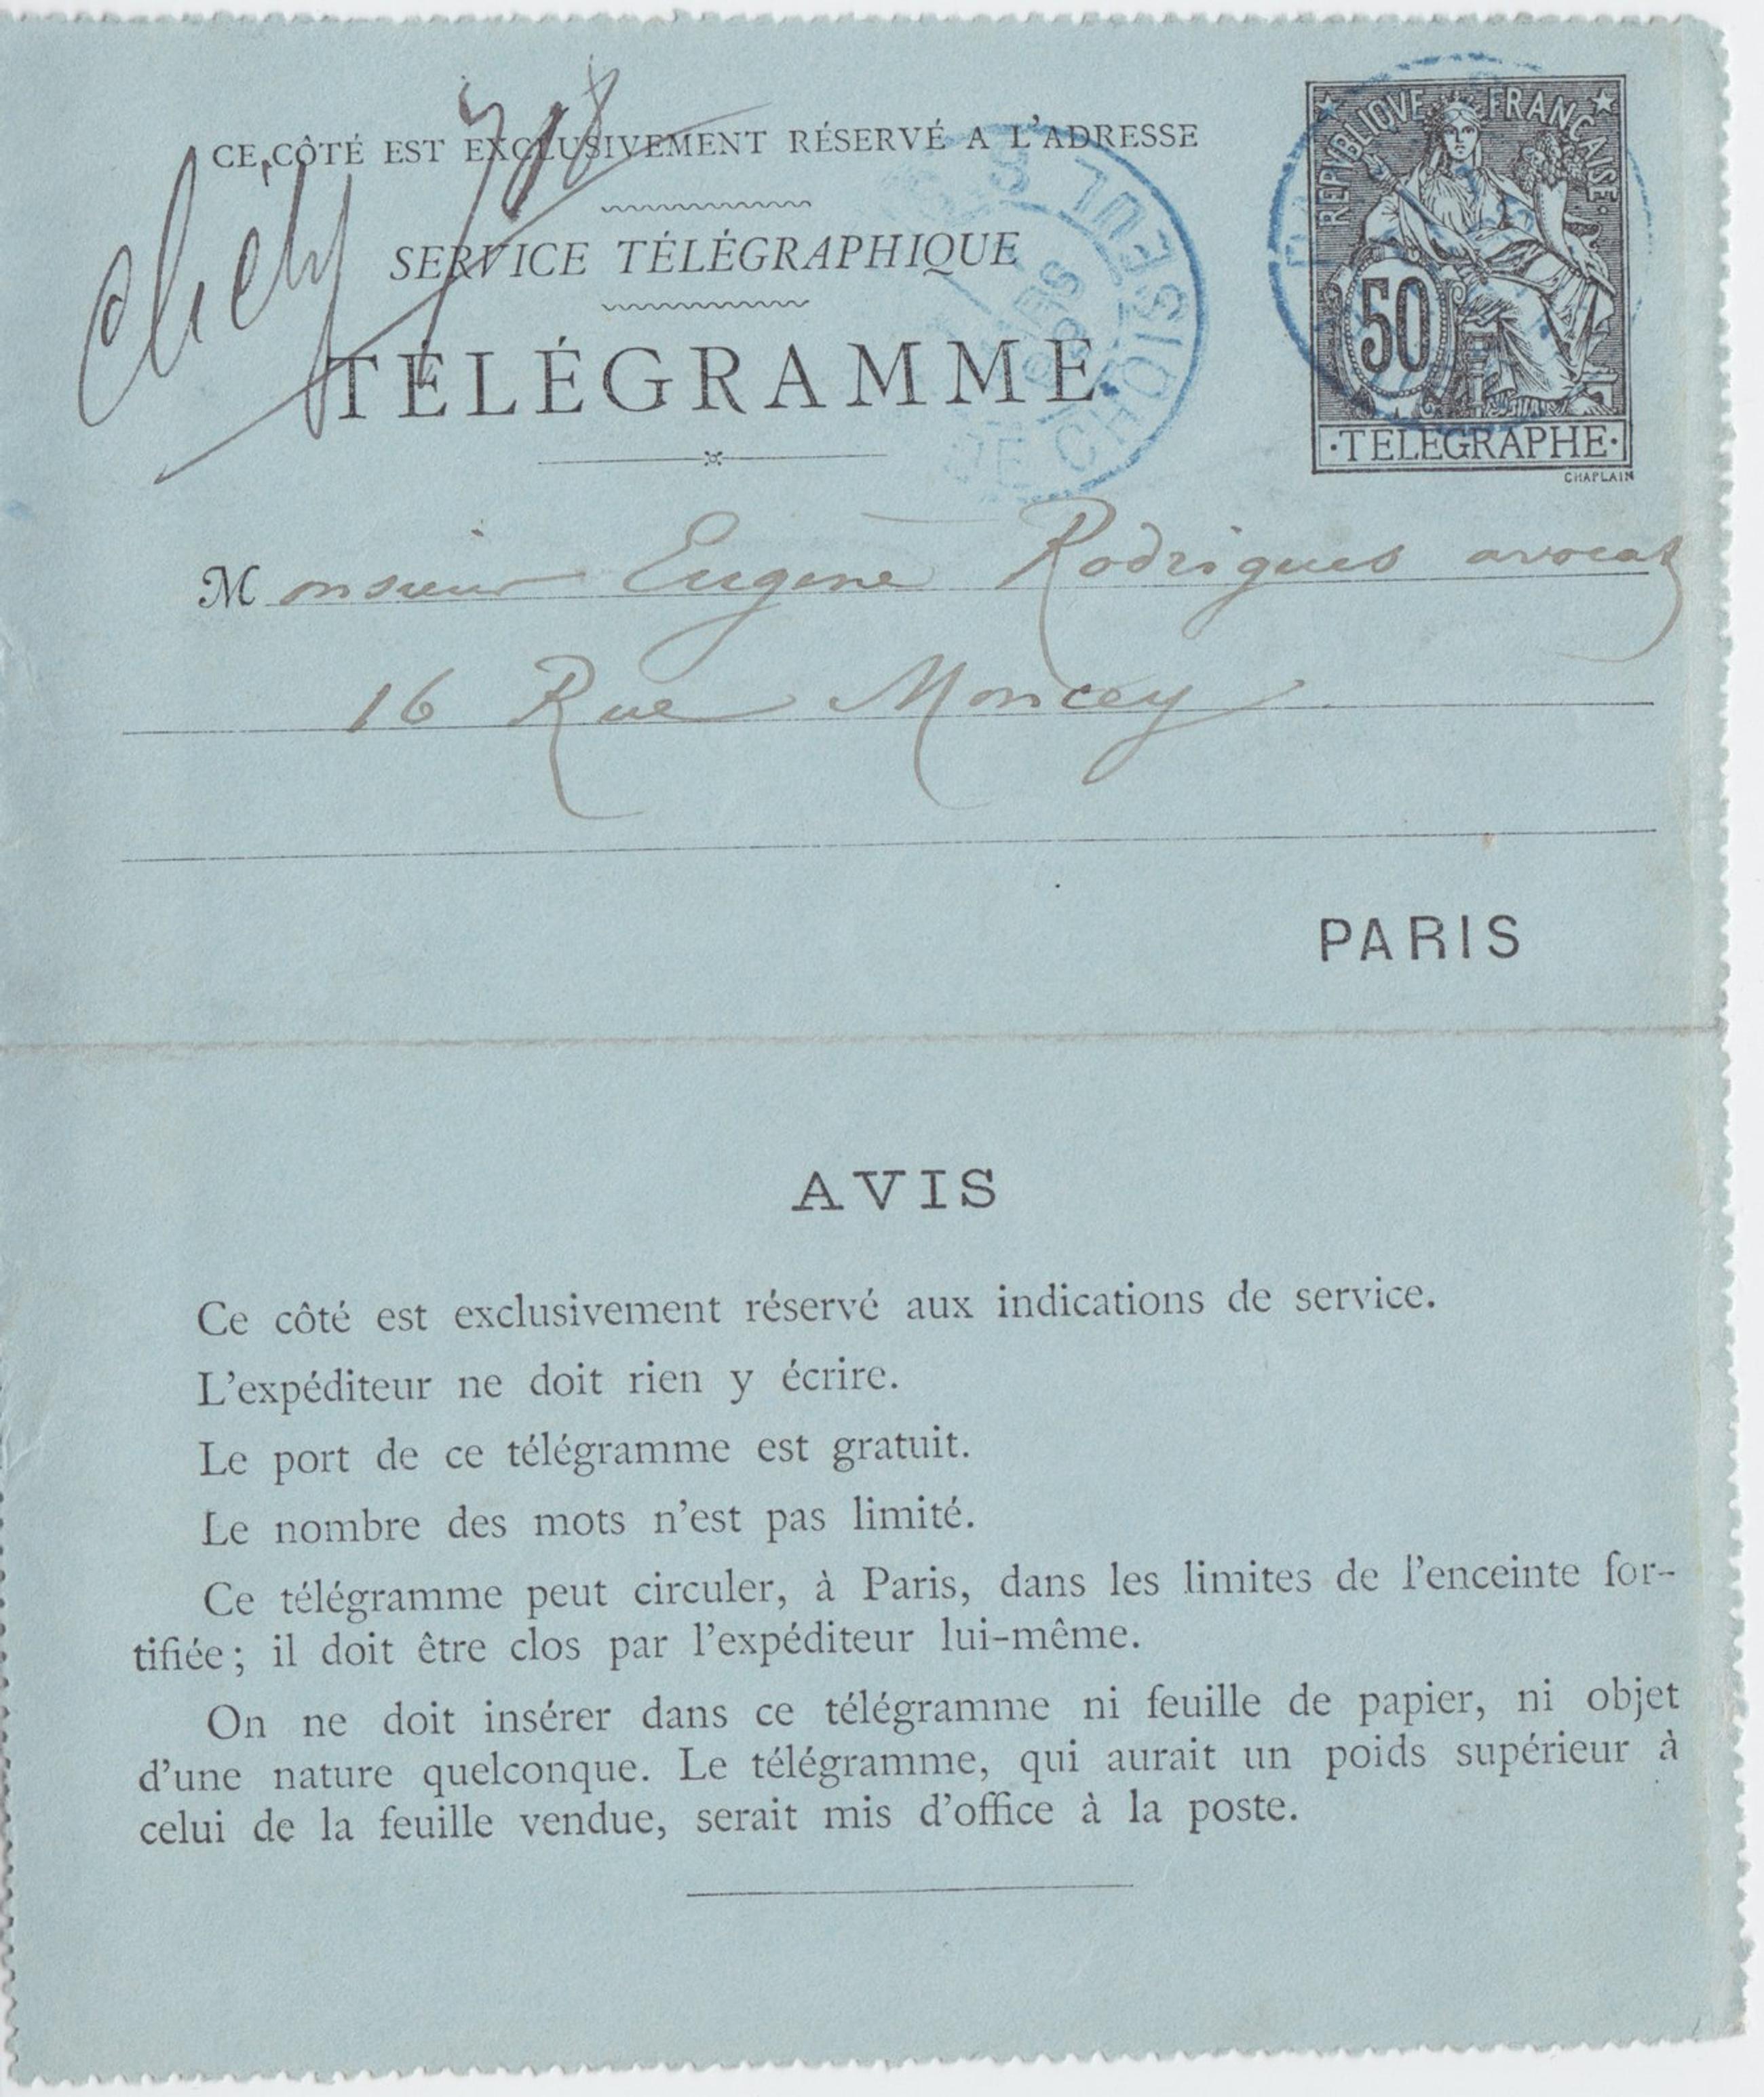 CE CÔTÉ EST EXCLUSIVEMENT RÉSERVÉ A L'ADRESSE
SERVICE TÉLÉGRAPHIQUE
TÉLÉGRAMME
RUE DE CHOISEUL
REPVBLIQVE FRANCAISE
50
·TELEGRAPHE·
CHAPLAIN
Monsieur Eugene Rodrigues avocat
16 Rue Moncey
PARIS
AVIS
Ce côté est exclusivement réservé aux indications de service.
L'expéditeur ne doit rien y écrire.
Le port de ce télégramme est gratuit.
Le nombre des mots n'est pas limité.
Ce télégramme peut circuler, à Paris, dans les limites de l'enceinte for-
tifiée; il doit être clos par l'expéditeur lui-même.
On ne doit insérer dans ce télégramme ni feuille de papier, ni objet
d'une nature quelconque. Le télégramme, qui aurait un poids supérieur à
celui de la feuille vendue, serait mis d'office à la poste.